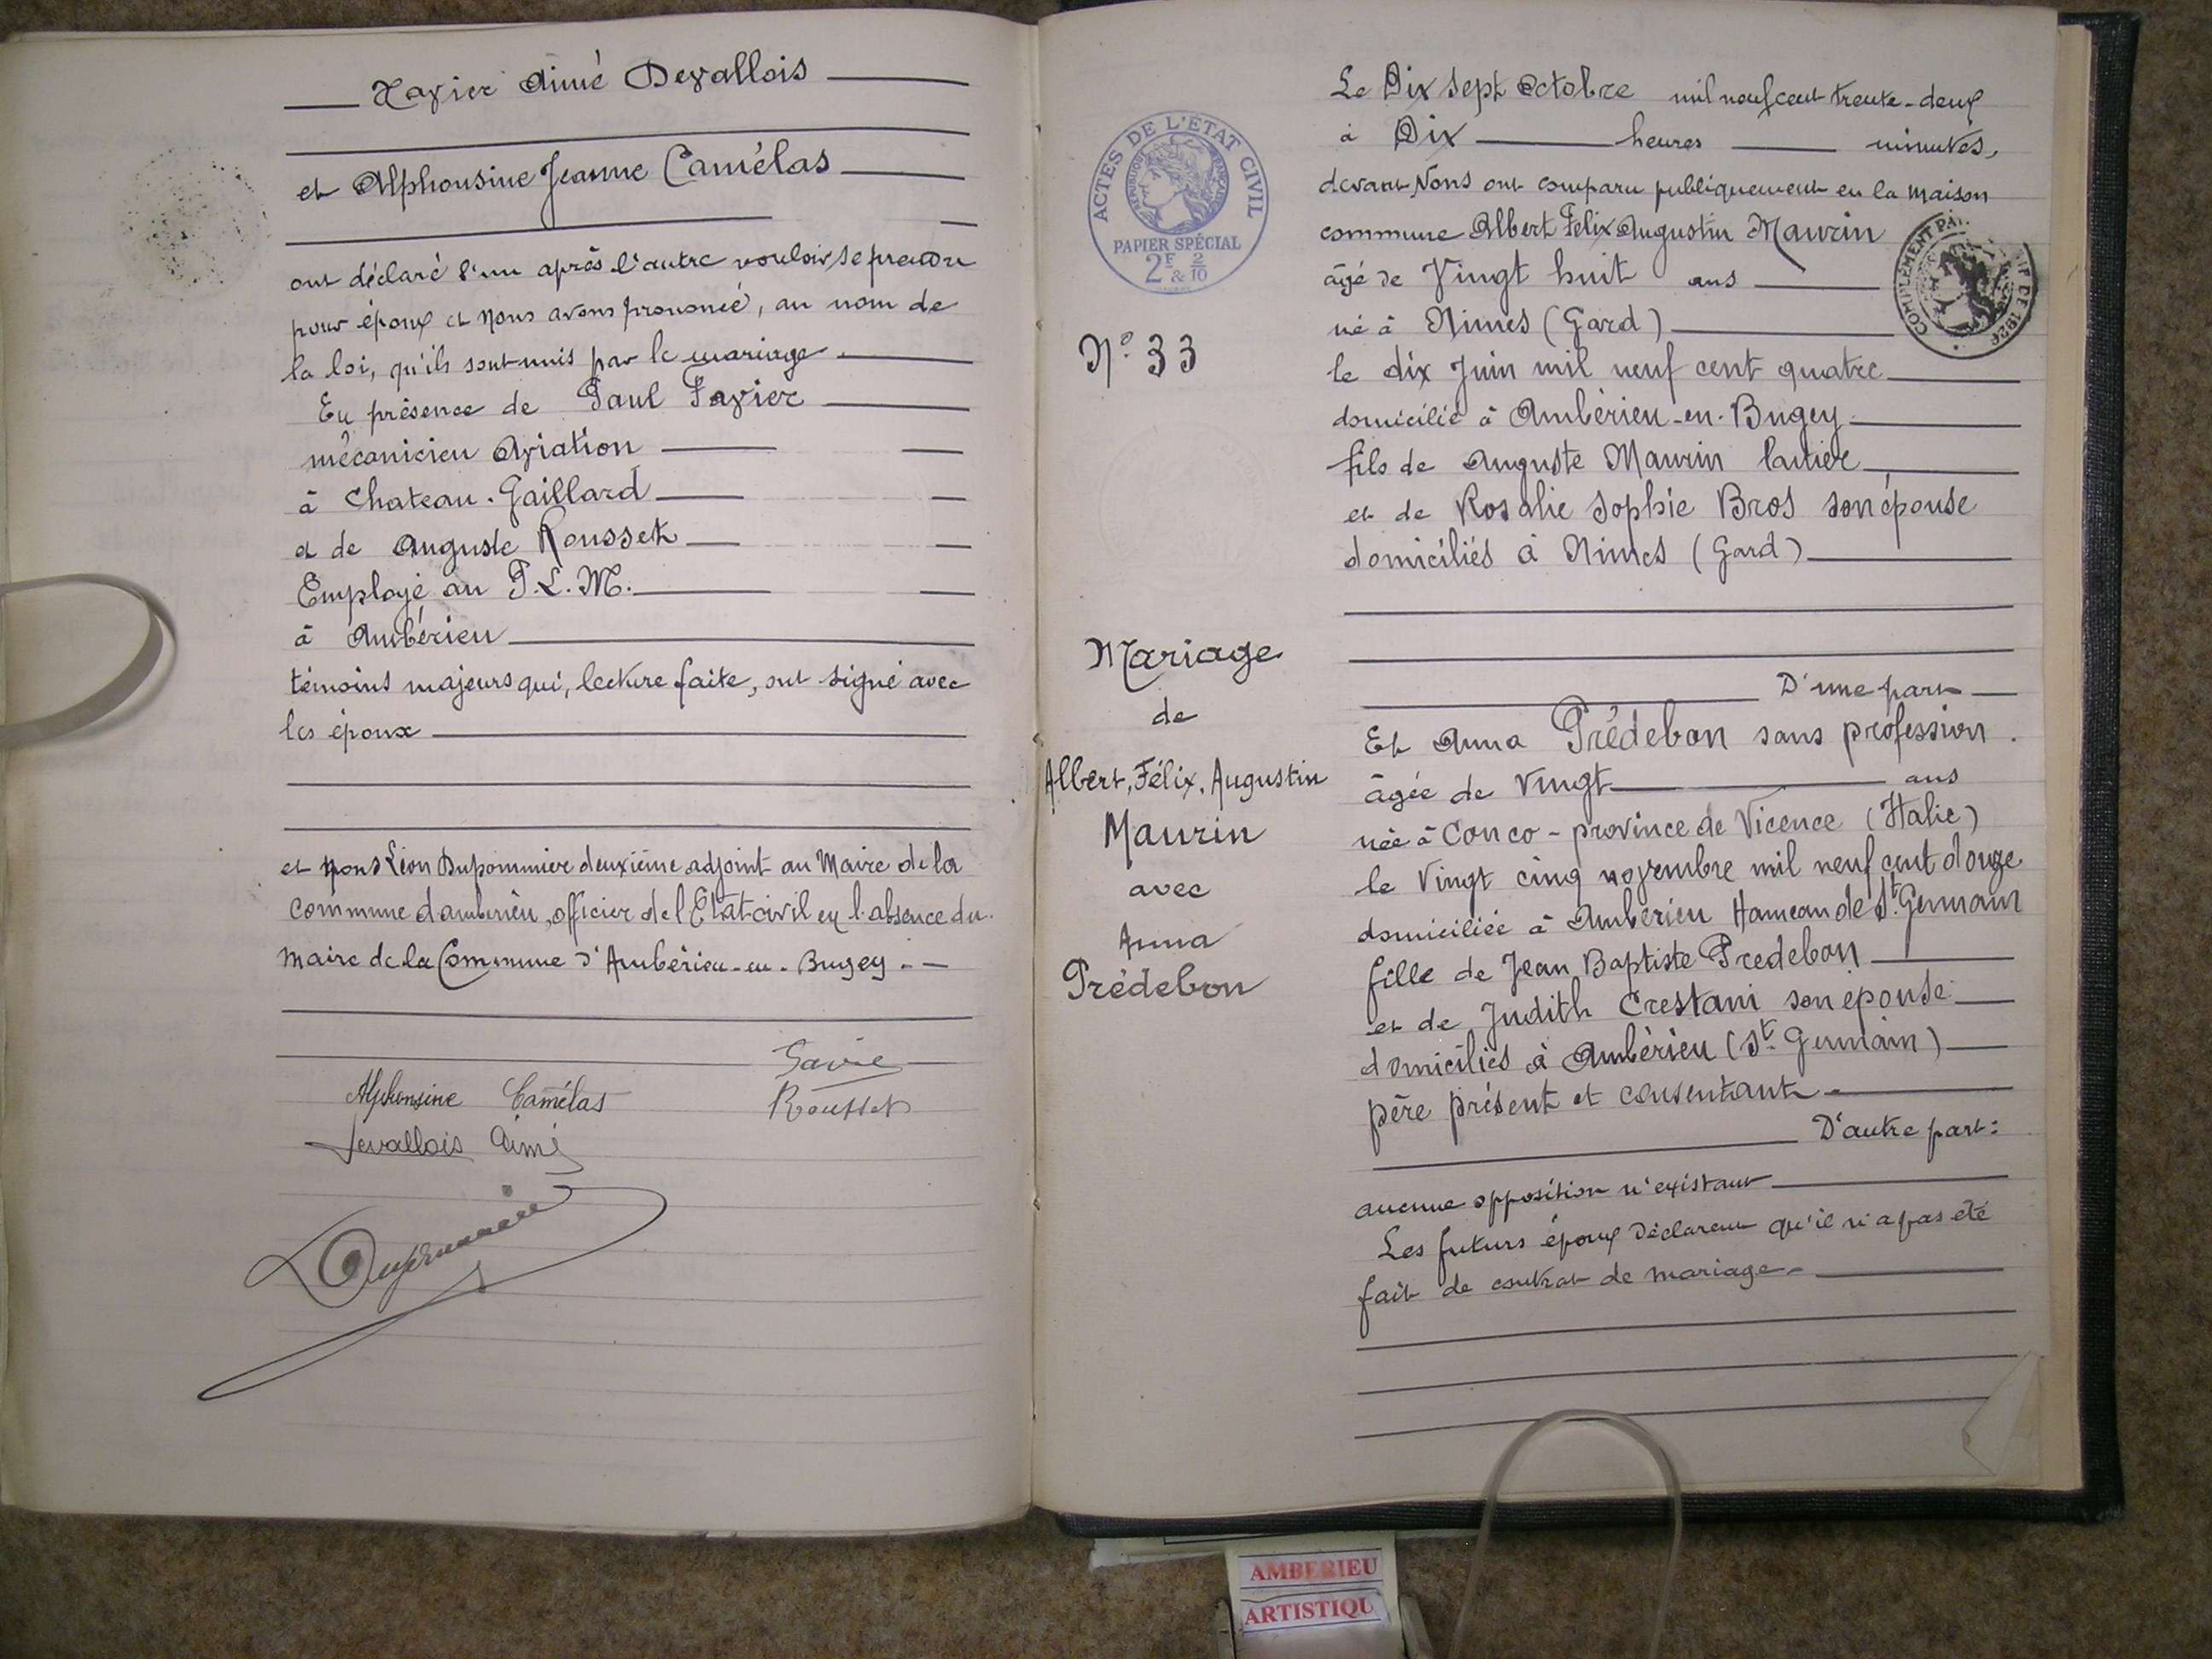 Xavier Aimé Devallois
et Alphonsine Jeanne Camélas
ont déclaré l'un après l'autre vouloir se prendre
pour époux et Nous avons prononcé, au nom de
la loi, qu'ils sont unis par le mariage.
En présence de Paul Favier
mécanicien Aviation
à Chateau-Gaillard
et de Auguste Rousset
Employé au P.L.M.
à Ambérieu
témoins majeurs qui, lecture faite, ont signé avec
les époux
et nous Léon Dupommier deuxième adjoint au Maire de la
Commune d'ambérieu, officier de l'Etat-civil en l'absence du
Maire de la Commune d'Ambérieu-en-Bugey.
Alphonsine Camélas
Rousset
Devallois Aimé
ACTES DE L'ÉTAT CIVIL
RÉPUBLIQUE FRANÇAISE
PAPIER SPÉCIAL
2F & 2/10
N° 33
Mariage
de
Albert, Félix, Augustin
Maurin
avec
Anna
Prédebon
Le Dix sept Octobre mil neuf cent trente-deux
à Dix heures minutes,
devant Nous ont comparu publiquement en la maison
commune Albert Félix Augustin Maurin
COMPLÉMENT DE 192
âgé de Vingt huit ans
né à Nimes (Gard)
le dix Juin mil neuf cent quatre
domicilié à Ambérieu-en-Bugey
fils de Auguste Maurin
et de Rosalie Sophie Bros son épouse
domiciliés à Nimes (Gard)
D'une part
Et Anna Prédebon sans profession.
âgée de Vingt ans
née à Conco - province de Vicence (Italie)
le Vingt cinq novembre mil neuf cent douze
domiciliée à Ambérieu Hameau de St. Germain
fille de Jean Baptiste Predebon
et de Judith Crestani son épouse
domiciliés à Ambérieu (St. Germain)
père présent et consentant.
D'autre part:
aucune opposition n'existant
Les futurs époux déclarent qu'il n'a pas été
fait de contrat de mariage.
AMBERIEU
ARTISTIQU